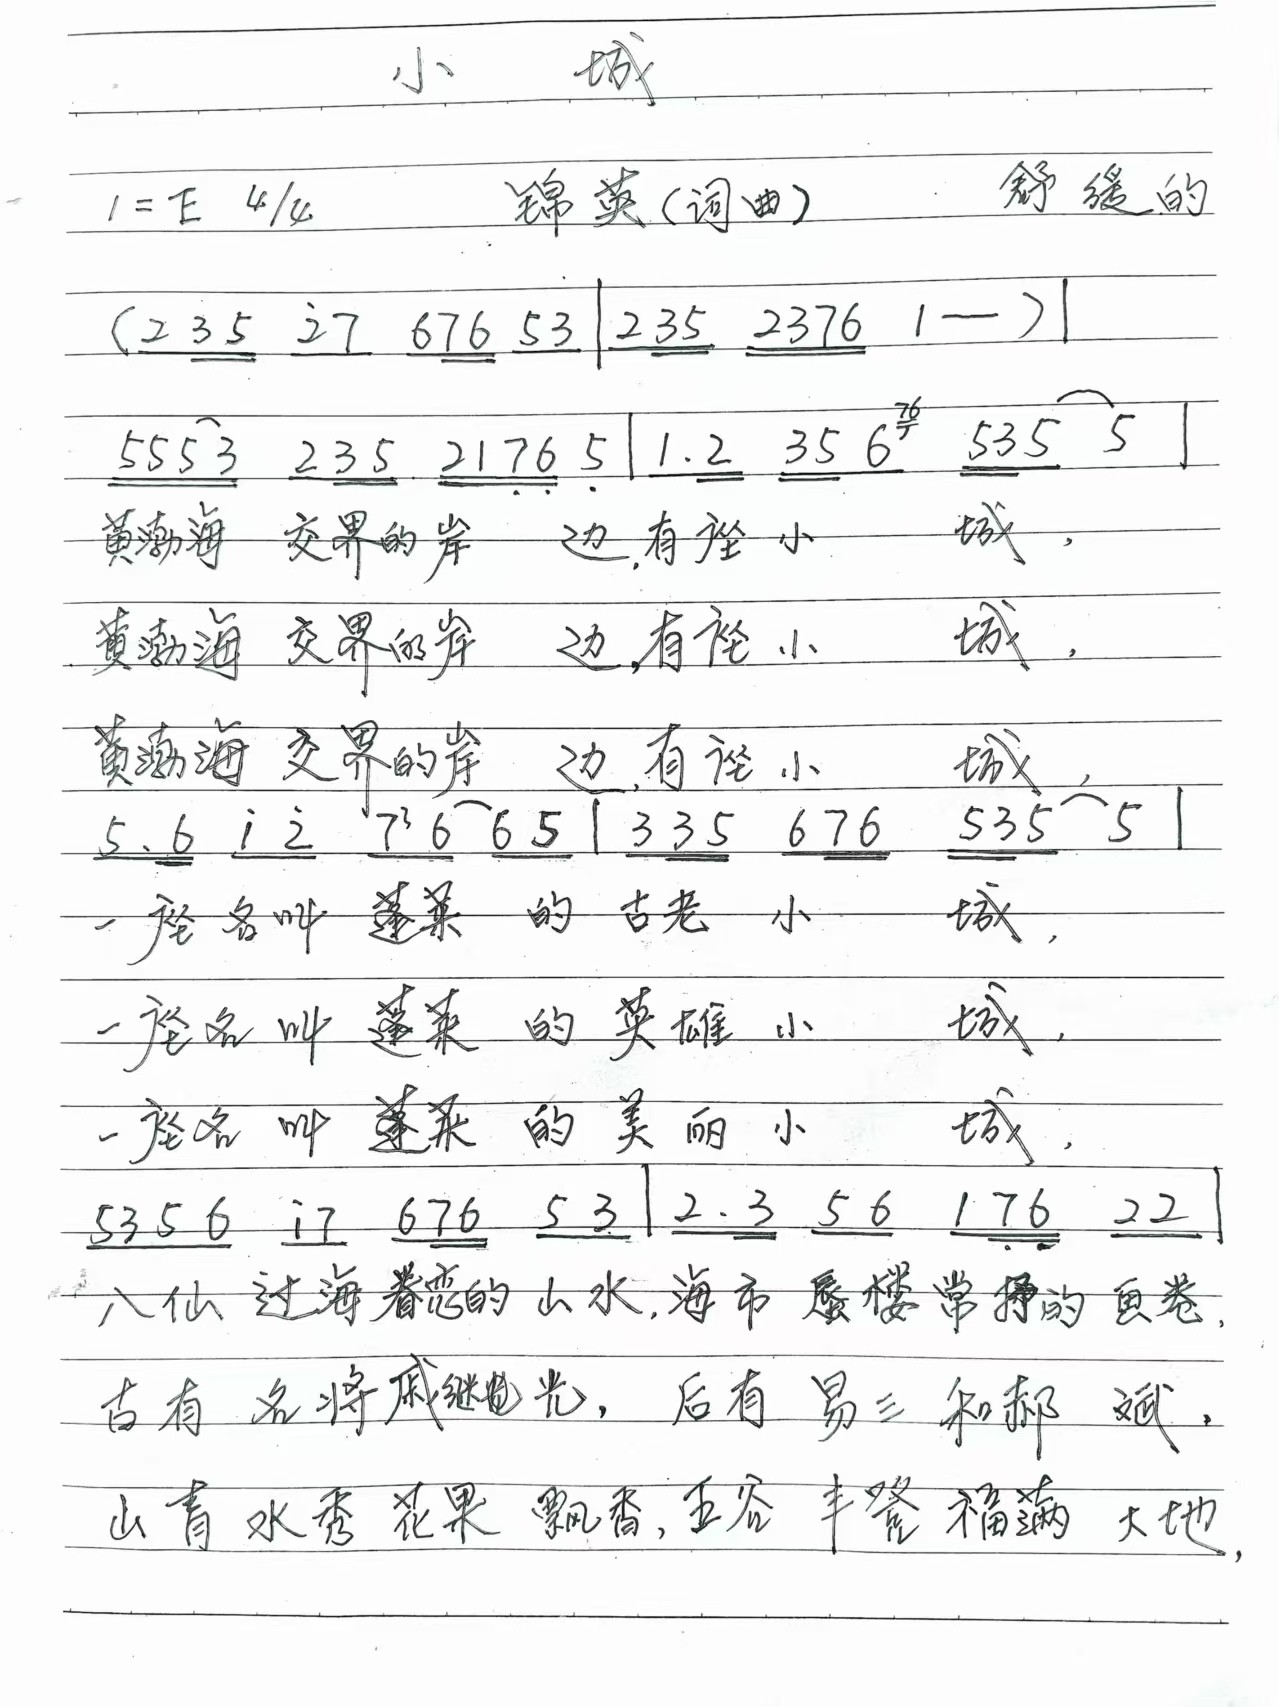 小 城
1=E 4/4 锦英(词曲) 舒缓的
(235 i7 676 53|235 2376 1—)|
5553 235 2176 5|1.2 356 76 535 5|
黄渤海 交界的岸 边,有座小 城,
黄渤海 交界的岸 边,有座小 城,
黄渤海 交界的岸 边,有座小 城,
5.6 i 2̇ 7 3 6 65|335 676 535 5|
一座名叫 蓬莱 的 古老 小 城,
一座名叫 蓬莱 的 英雄 小 城,
一座名叫 蓬莱 的 美丽 小 城,
5356 i7 676 53|2.3 56 176 22|
八仙 过海眷恋的山水,海市 蜃楼常择的画卷,
古有 名将戚继光, 后有 易三 和郝 斌,
山青 水秀 花果 飘香,五谷 丰登 福满 大地,